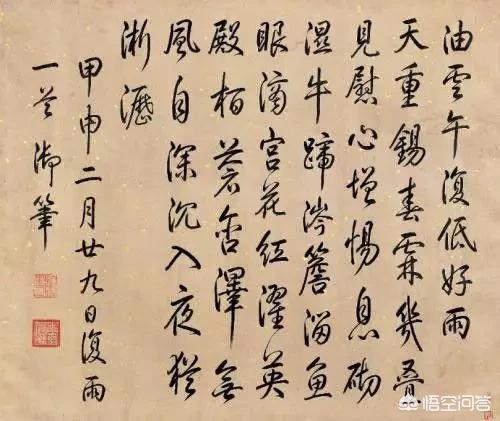 油雲午復低好雨
天重錫春霖幾疊
見慰心增惕息砌
濕牛蹄涔簷溜魚
眼滴宮花紅濯英
殿栢蒼含澤無
風自深沉入夜猶
淅瀝
甲申二月廿九日復雨
一首御筆
悟空问答